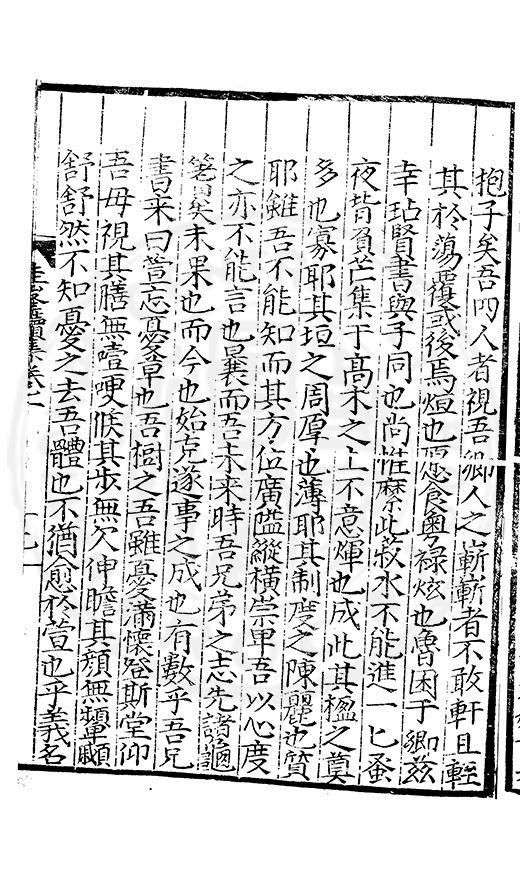 抱子矣吾四人者視吾鄉人之嶄嶄者不敢軒且輊
其於蕩覆或後焉烜也愿食粵祿炫也魯困于鄉茲
幸玷賢書與子同也尚惟縻此菽水不能進一匕蚤
夜背負芒集于高木之上不意煇也成此其楹之奠
多也寡耶其垣之周厚也薄耶其制度之陳麗也質
耶雖吾不能知而其方位廣隘縱橫崇卑吾以心度
之亦不能言也曩而吾未來時吾兄弟之志先諸龜
筮矣未果也而今也始克遂事之成也有數乎吾兄
書來曰萱忘憂草也吾樹之吾雖憂滿懷登斯堂仰
吾母視其膳無噎哽候其步無欠伸瞻其顏無顰顣
舒舒然不知憂之去吾體也不猶愈於萱也乎義名